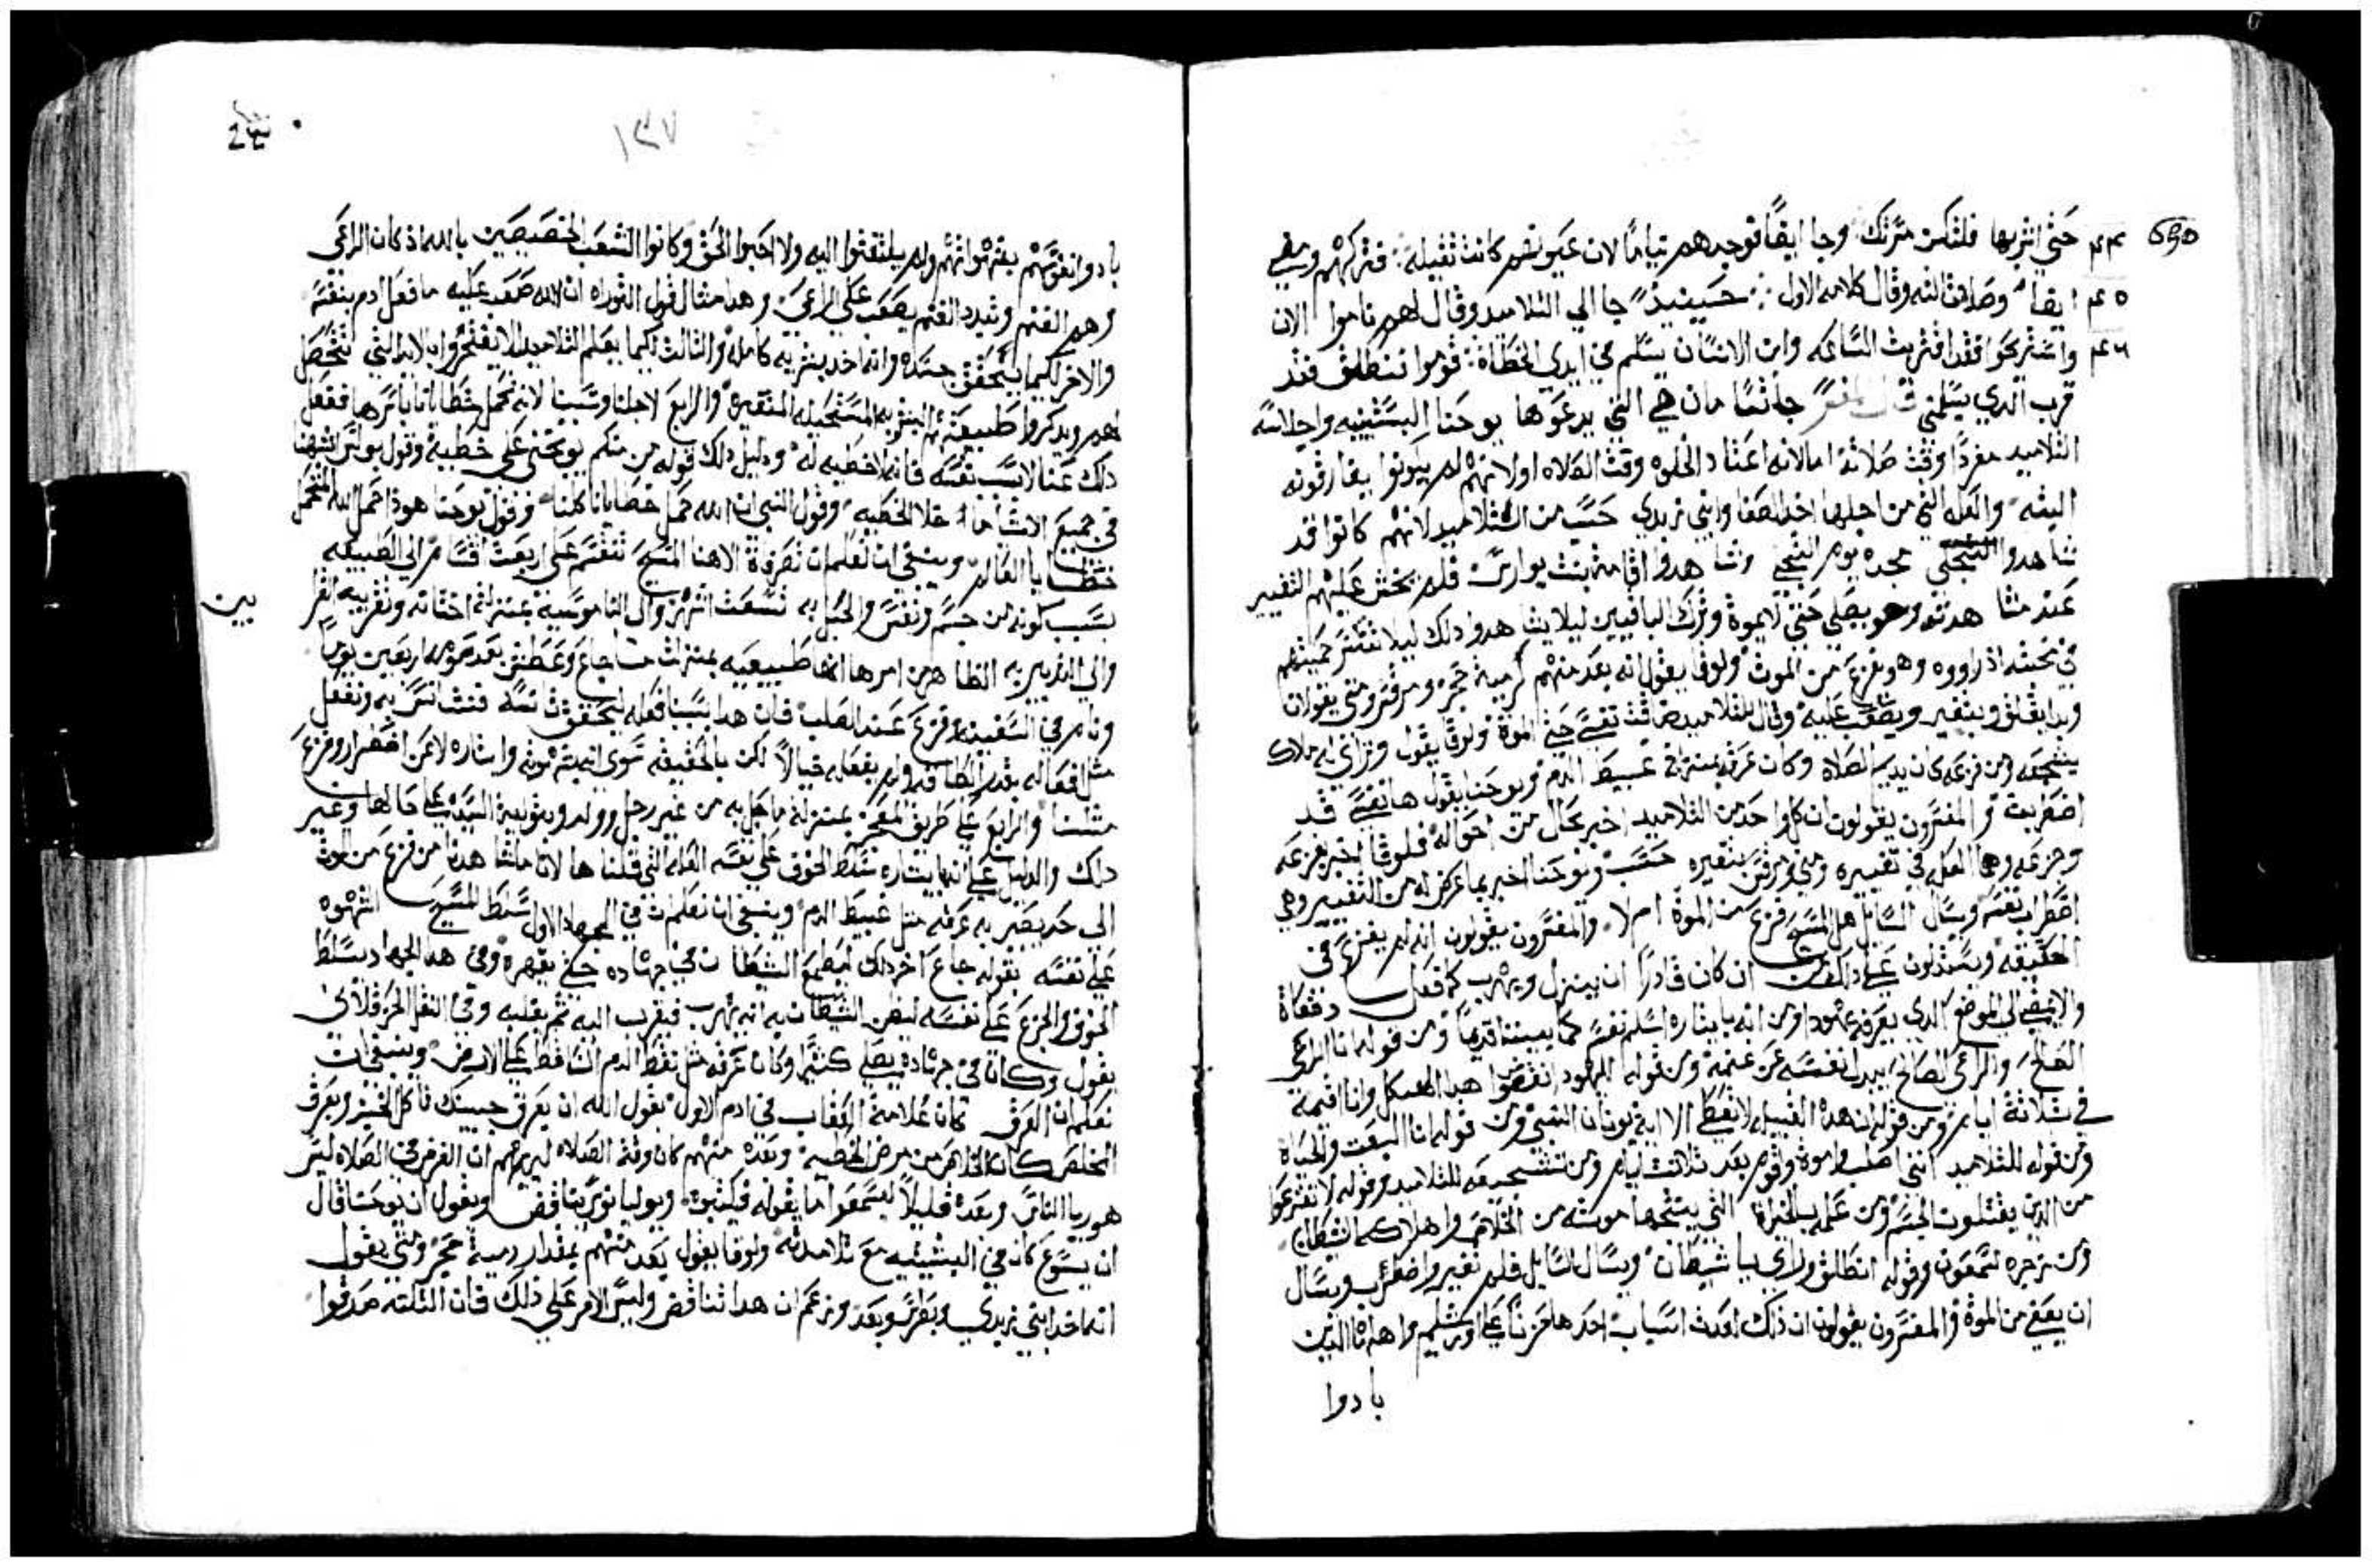 حتي اشربها فلتكن مسرتك وجا ايضًا فوجدهم نيامًا لان عيونهم كانت ثقيله فتركهم ومضي
ايضا وصلا ثالثه وقال كلامه الاول حينيذ جا الي التلاميد وقال لهم ناموا الان
واستريحوا فقد اقتربت الساعه وابن الانسان يسلم في ايدي الخطاة قوموا ننطلق فقد
قرب الدي يسلمني قال المفسر جاثسامان هي التي يدعوها يوحنا البستنيه واجلاسه
التلاميد مفردًا وقت صلاته اما لانه اعتاد الخلوه وقت الصلاه او لانهم لم يكونوا يفارقونه
البته والعله التي من اجلها اخد الصفا وابني زبدي حسب من التلاميد لانهم كانوا قد
شاهدوا التجلي مجده يوم التجلي وشاهدوا اقامة بنت يوارس فلم يخش عليهم التغيير
عند مشاهدته وهو يصلي حتي لا يموت وترك الباقيين ليلا يشاهدوا دلك ليلا تنكسر حميتهم
في محبته اذ راووه وهو يفزع من الموت ولوقا يقول انه بعد منهم كرمية حجر ومرقس ومتي يقولان
وبدا يقلق ويتغير ويصعب عليه وقال للتلاميد ضاقت نفسي حتي الموت ولوقا يقول وتراى له ملاك
يشجعه ومن فزعه كان يديم الصلاة وكان عرقه بمنزلة عبيط الدم ويوحنا يقول ها نفسي قد
اضطربت والمفسرون يقولون ان كل واحد من التلاميد اخبر بحال من احواله فلوقا اخبر بفزعه
اضطراب نفسه ويسال السايل هل المسيح فزع من الموت ام لا والمفسرون يقولون انه لم يفزع في
الحقيقه ويستدلون علي دلك من ان كان قادرًا ان ينزل ويهرب كما فعل دفعاة
والا يمضي الي الموضع الدي يعرفه يهودا ومن انه بايثاره اسلم نفسه كما بيننا قديمًا ومن قوله انا الراعي
الصالح والراعي الصالح يبدل نفسه عن غنمه ومن قوله لليهود انقضوا هدا الهيكل وانا اقيمه
في ثلاثة ايام ومن قوله ان هده القبيله لا تعطي الا اية يونان النبي ومن قوله انا البعث والحياة
ومن قوله للتلاميد انني اصلب واموت واقوم بعد ثلاثت ايام ومن تشجيعه للتلاميد وقوله لا تفزعوا
من الدين يقتلون الجسم ومن علمه بالخيرات التي ينتجها موته من الخلاص واهلاك الشيطان
ومن زجره لشمعون وقوله انطلق وراى يا شيطان ويسال السايل فلم تغير واضطرب ويسال
ان يعفي من الموت والمفسرون يقولون ان ذلك لعدت اسباب احدها حزنًا علي اورشليم واهلها الدين
بادوا
١٣٧
بادوا نفوسهم بقتهواتهم ولم يلتفتوا اليه ولا احبوا الحق وكانوا الشعب الخصيصين بالله اذ كان الراعي
وهم الغنم وتبدد الغنم يصعب علي الراعي وهدا مثال قول التوراه ان الله صعب عليه ما فعل ادم بنفسه
والاخر لكيما يتحقق جسده وانه اخد بشريه كامله والثالث لكيما يعلم التلاميد الا يفتخروا بالايدالتي تتحصل
لهم ويدكروا طبيعتهم البشريه المستحيله المتغيره والرابع لاجلنا وتسببنا لانه تحمل خطايانا باسرها ففعل
دلك عنا لا بسبب نفسه فانه لا خطيه له ودليل دلك قوله من منكم يوبخني علي خطية وقول بولس اشبهنا
في جميع الاشيا ما خلا الخطيه وقول النبي ان الله حمل خطايانا كلنا وقول يوحنا هودا حمل الله المتحمل
خطايا العالم وينبغي ان تعلم ان تصرفات الاهنا المسيح تنقسم علي اربعت اقسام الي الطبيعه
بسبب كونه من جسم ونفس والحبل به تسعت اشهر والي الناموسية بمنزلة اختتانه وتقريبه القرابين
ونام في السفينه وفزع عند الصلب فان هدا بسببنا فعله لتحقق تانسه
مثلنا والرابع علي طريق المعجز بمنزلة ما حبل به من غير رجل وولد وبتولية السيدة علي حالها وغير
دلك والدليل علي انه بايثاره سلط الخوف علي نفسه العله التي قلناها لانا ما شاهدنا من فزع من الموت
الي حد يصير به عرقه مثل عبيط الدم وينبغي ان تعلم ان في الجهاد الاول سلط المسيح الشهوه
علي نفسه بقوله جاع اخر دلك ليطمع الشيطان في جهاده حتي يقهره وفي هدا الجهاد سلط
الخوف والجزع علي نفسه ليظن الشيطان به انه يهرب فيقرب اليه ثم يغلبه وفي النقل الحرقلاني
يقول وكان في جهاده يصلي كثيرا وكان عرقه مثل نقط الدم الساقط علي الارض وينبغي ان
تعلم ان العرق كان علامة العقاب في ادم الاول بقول الله ان بعرق جبينك تاكل الخبز وبعرق
المخلص كان الخلاص من مرض الخطيه وبعده منهم كان وقت الصلاه ليريهم ان الغرض في الصلاه ليس
هو ريا الناس وبعده قليلاً ليسمعوا ما يقوله فيكتبوه ويوليانوس يناقض ويقول ان يوحنا قال
ان يسوع كان في البستنيه مع تلاميده ولوقا يقول بعد منهم بمقدار رمية حجر ومتي يقول
انه اخد ابني زبدي وبطرس وبعد وزعم ان هدا تناقض وليس الامر علي ذلك فان الثلثه صدقوا